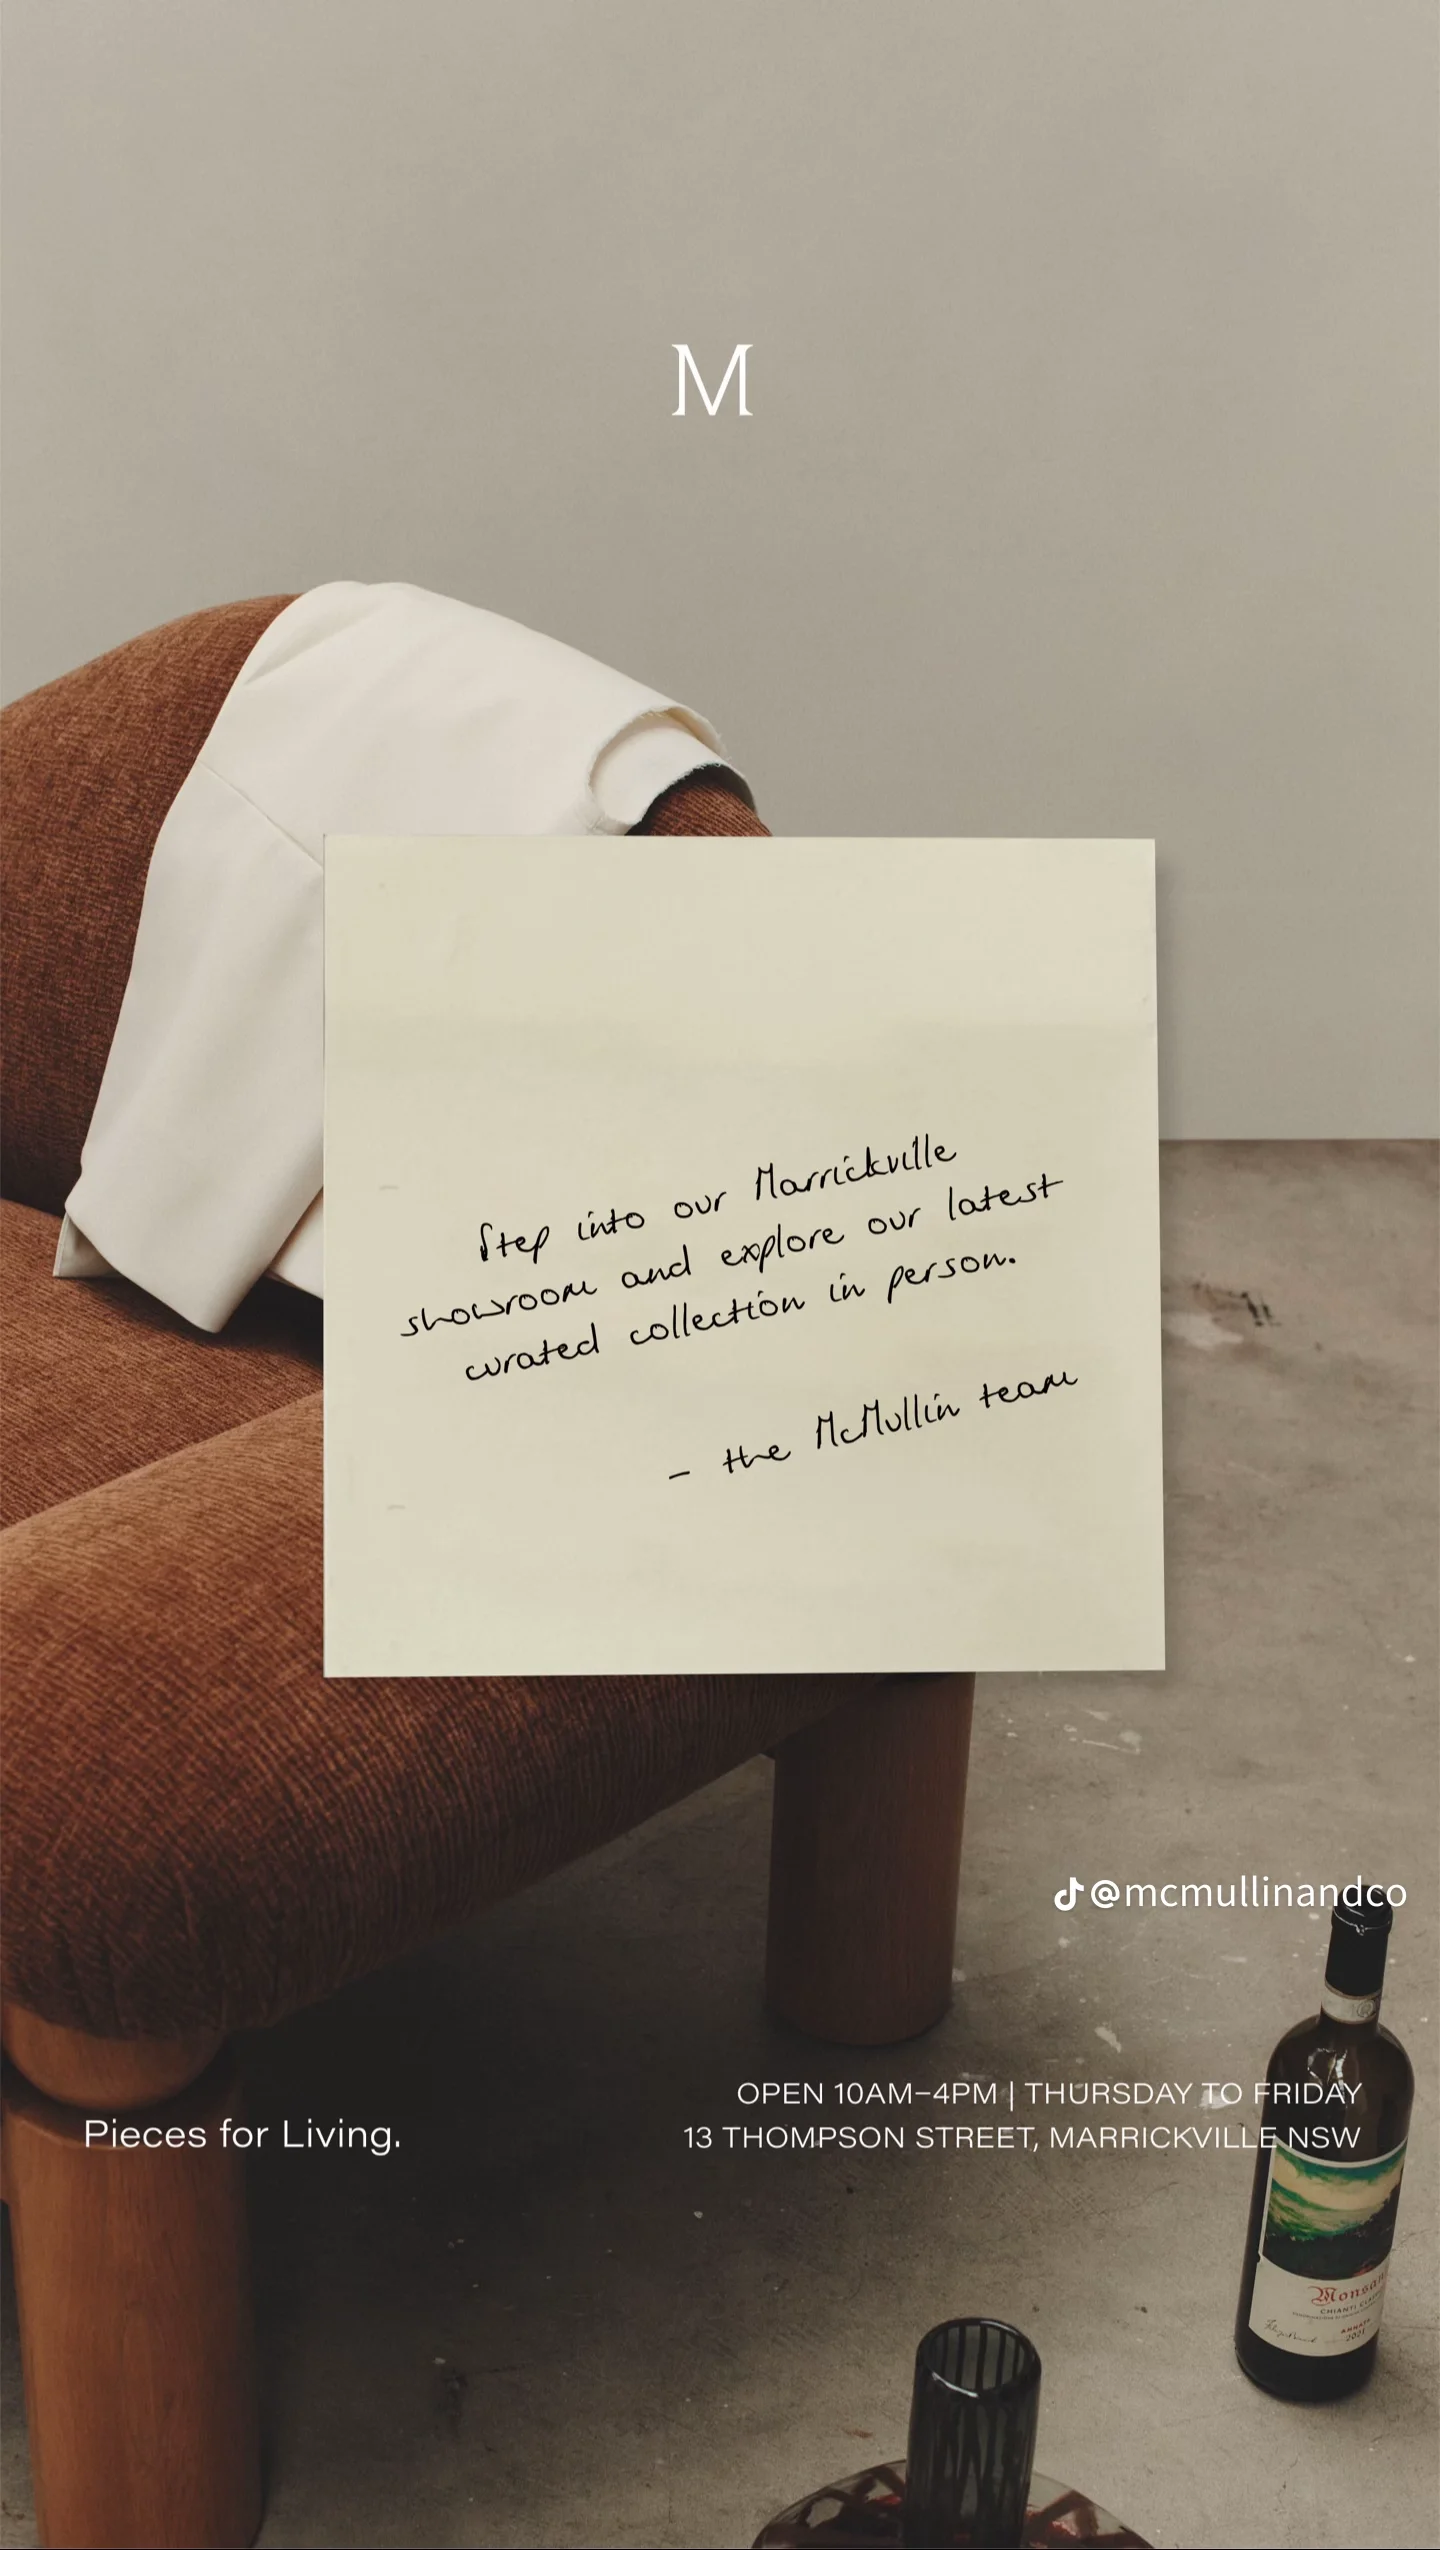 M
Step into our Marrickville
showroom and explore our latest
curated collection in person.
- the McMullin team
@mcmullinandco
Pieces for Living.
OPEN 10AM–4PM | THURSDAY TO FRIDAY
13 THOMPSON STREET, MARRICKVILLE NSW
CHIANTI
ANNATA
2021